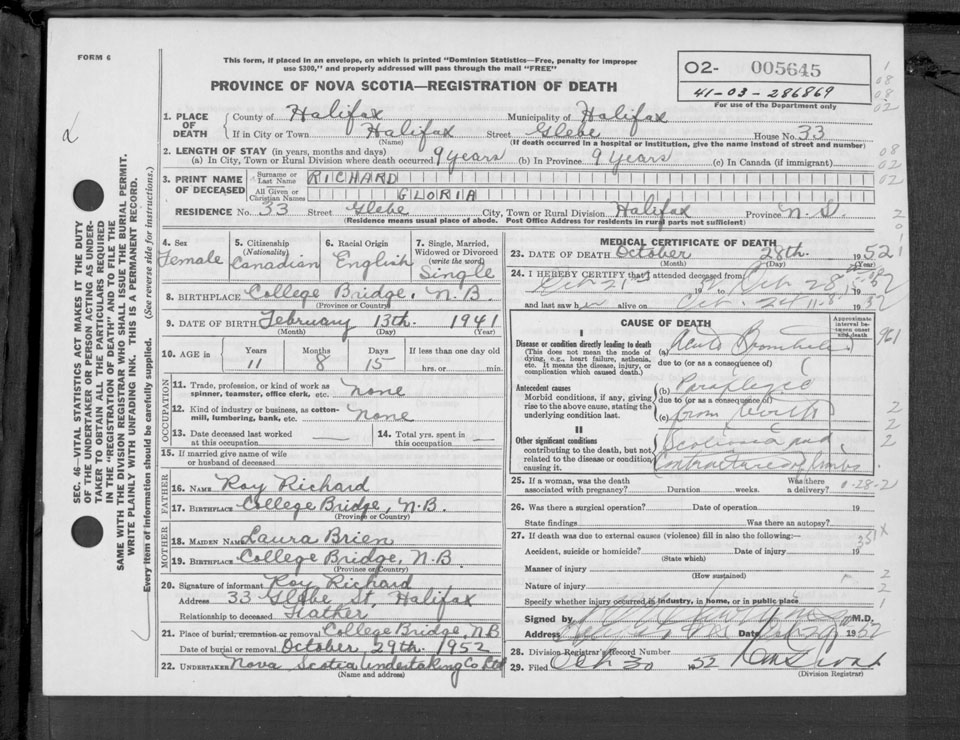 FORM 6
This form, if placed in an envelope, on which is printed "Dominion Statistics—Free, penalty for improper
use $300," and properly addressed will pass through the mail "FREE"
PROVINCE OF NOVA SCOTIA—REGISTRATION OF DEATH
O2- 005645
41-03-286869
For use of the Department only
1. PLACE OF DEATH
County of Halifax Municipality of Halifax
If in City or Town Halifax Street Glebe House No. 33
(Name) (If death occurred in a hospital or institution, give the name instead of street and number)
2. LENGTH OF STAY (in years, months and days)
(a) In City, Town or Rural Division where death occurred 9 years (b) In Province 9 years (c) In Canada (if immigrant)
3. PRINT NAME OF DECEASED
Surname or Last Name RICHARD
All Given or Christian Names GLORIA
RESIDENCE No. 33 Street Glebe City, Town or Rural Division Halifax Province N.S.
(Residence means usual place of abode. Post Office Address for residents in rural parts not sufficient)
SEC. 46—VITAL STATISTICS ACT MAKES IT THE DUTY
OF THE UNDERTAKER OR PERSON ACTING AS UNDER-
TAKER TO OBTAIN ALL THE PARTICULARS REQUIRED
IN THE "REGISTRATION OF DEATH" AND TO FILE THE
SAME WITH THE DIVISION REGISTRAR WHO SHALL ISSUE THE BURIAL PERMIT.
WRITE PLAINLY WITH UNFADING INK. THIS IS A PERMANENT RECORD.
Every item of information should be carefully supplied. (See reverse side for instructions.)
4. Sex Female
5. Citizenship (Nationality) Canadian
6. Racial Origin English
7. Single, Married, Widowed or Divorced (write the word) Single
8. BIRTHPLACE College Bridge, N.B.
(Province or Country)
9. DATE OF BIRTH February 13th. 1941
(Month) (Day) (Year)
10. AGE in Years 11 Months 8 Days 15 If less than one day old
hrs. or min.
OCCUPATION
11. Trade, profession, or kind of work as
spinner, teamster, office clerk, etc. None
12. Kind of industry or business, as cotton-
mill, lumbering, bank, etc. None
13. Date deceased last worked
at this occupation
14. Total yrs. spent in
this occupation
15. If married give name of wife
or husband of deceased
FATHER
16. NAME Roy Richard
17. BIRTHPLACE College Bridge, N.B.
(Province or Country)
MOTHER
18. MAIDEN NAME Laura Brien
19. BIRTHPLACE College Bridge, N.B
(Province or Country)
20. Signature of informant Roy Richard
Address 33 Glebe St. Halifax
Relationship to deceased Father
21. Place of burial, cremation or removal College Bridge, N.B
Date of burial or removal October 29th. 1952
22. UNDERTAKER Nova Scotia Undertaking Co Ltd
(Name and address)
MEDICAL CERTIFICATE OF DEATH
23. DATE OF DEATH October 28th. 1952
(Month) (Day) (Year)
24. I HEREBY CERTIFY that I attended deceased from
Oct 21st 19 to Oct 28 19 52
and last saw her alive on Oct. 19 52
CAUSE OF DEATH
Approximate interval between onset and death
I
Disease or condition directly leading to death
(This does not mean the mode of
dying, e.g., heart failure, asthenia,
etc. It means the disease, injury, or
complication which caused death.)
(a) Acute
due to (or as a consequence of)
Antecedent causes
Morbid conditions, if any, giving
rise to the above cause, stating the
underlying condition last.
(b)
due to (or as a consequence of)
(c) from birth
II
Other significant conditions
contributing to the death, but not
related to the disease or condition
causing it.
and
Contractures of limbs
25. If a woman, was the death
associated with pregnancy? Duration weeks. Was there a delivery?
26. Was there a surgical operation? Date of operation 19
State findings Was there an autopsy?
27. If death was due to external causes (violence) fill in also the following:—
Accident, suicide or homicide? Date of injury 19
(State which)
Manner of injury
(How sustained)
Nature of injury
Specify whether injury occurred in industry, in home, or in public place
Signed by M.D.
Address Date Oct 29 1952
28. Division Registrar's Record Number
29. Filed Oct 30 1952
(Division Registrar)